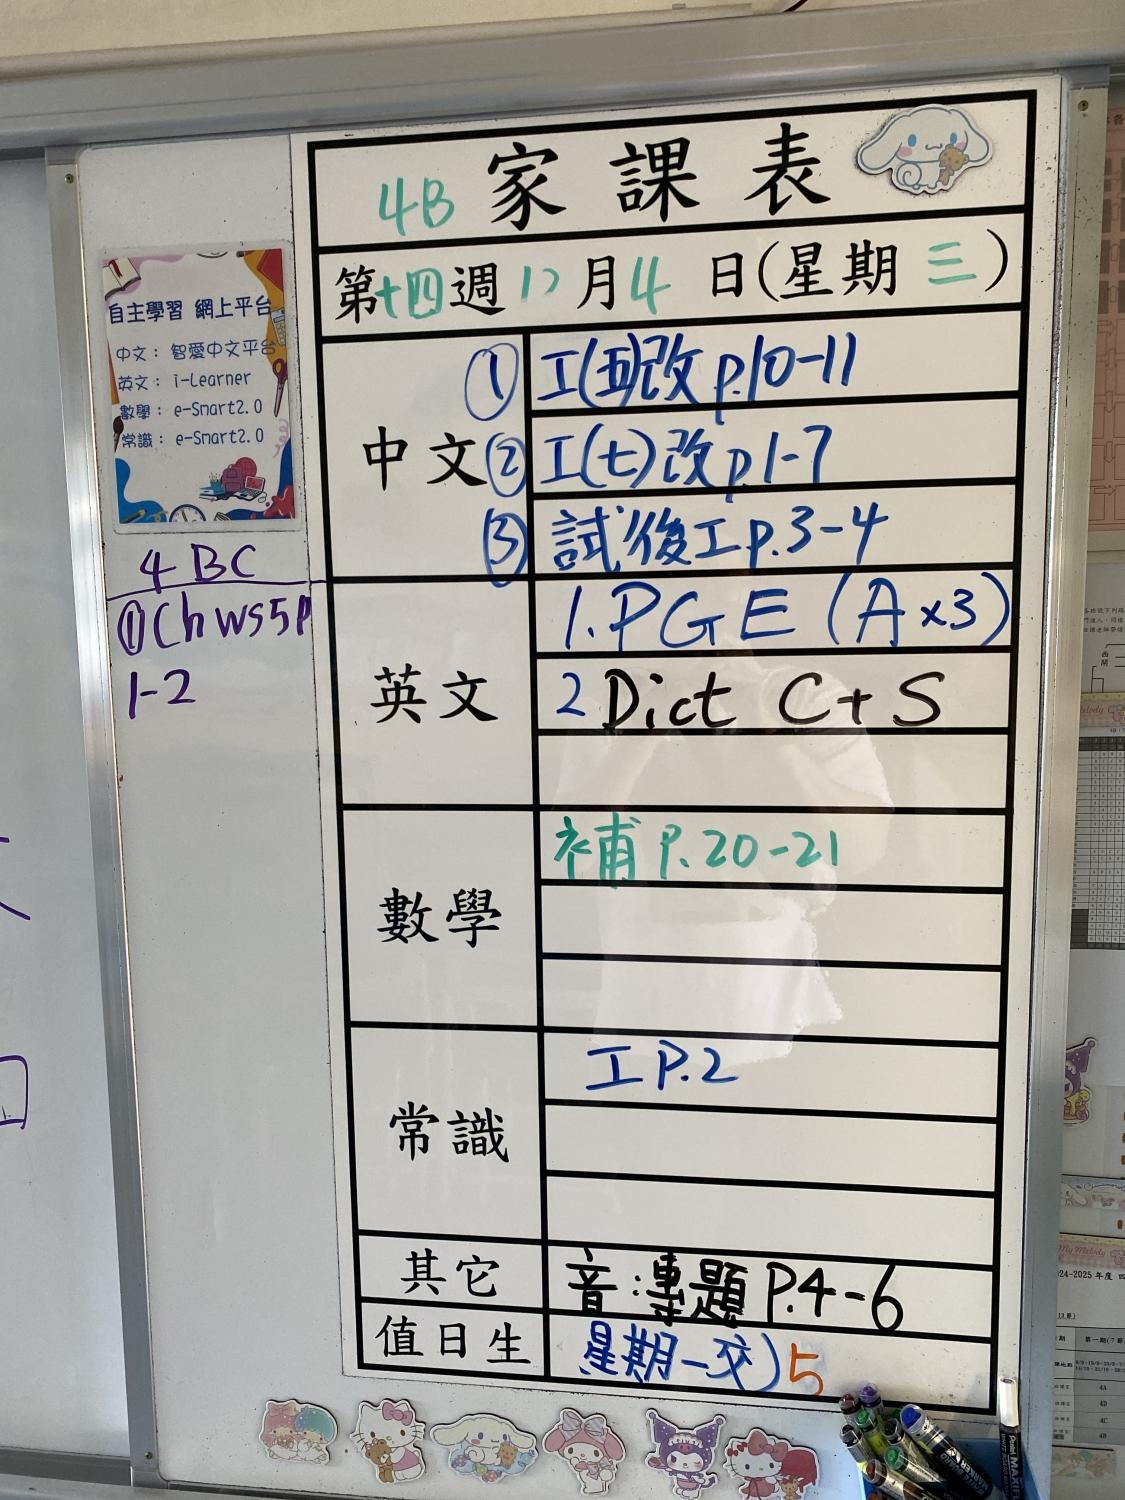 4B 家課表
第十四週12月4日(星期三)
自主學習 網上平台
中文：智愛中文平台
英文：i-Learner
數學：e-Smart2.0
常識：e-Smart2.0
4BC
①Ch ws5P
1-2
中文
① 工(五)改 p.10-11
② 工(七)改 p.1-7
③ 試後工 p.3-4
英文
1.PGE (A×3)
2 Dict C+S
數學
補 P.20-21
常識
工 P.2
其它
音:專題 P.4-6
值日生
星期一交) 5
My Melody
2024-2025 年度 四
4A
4D
4C
4B